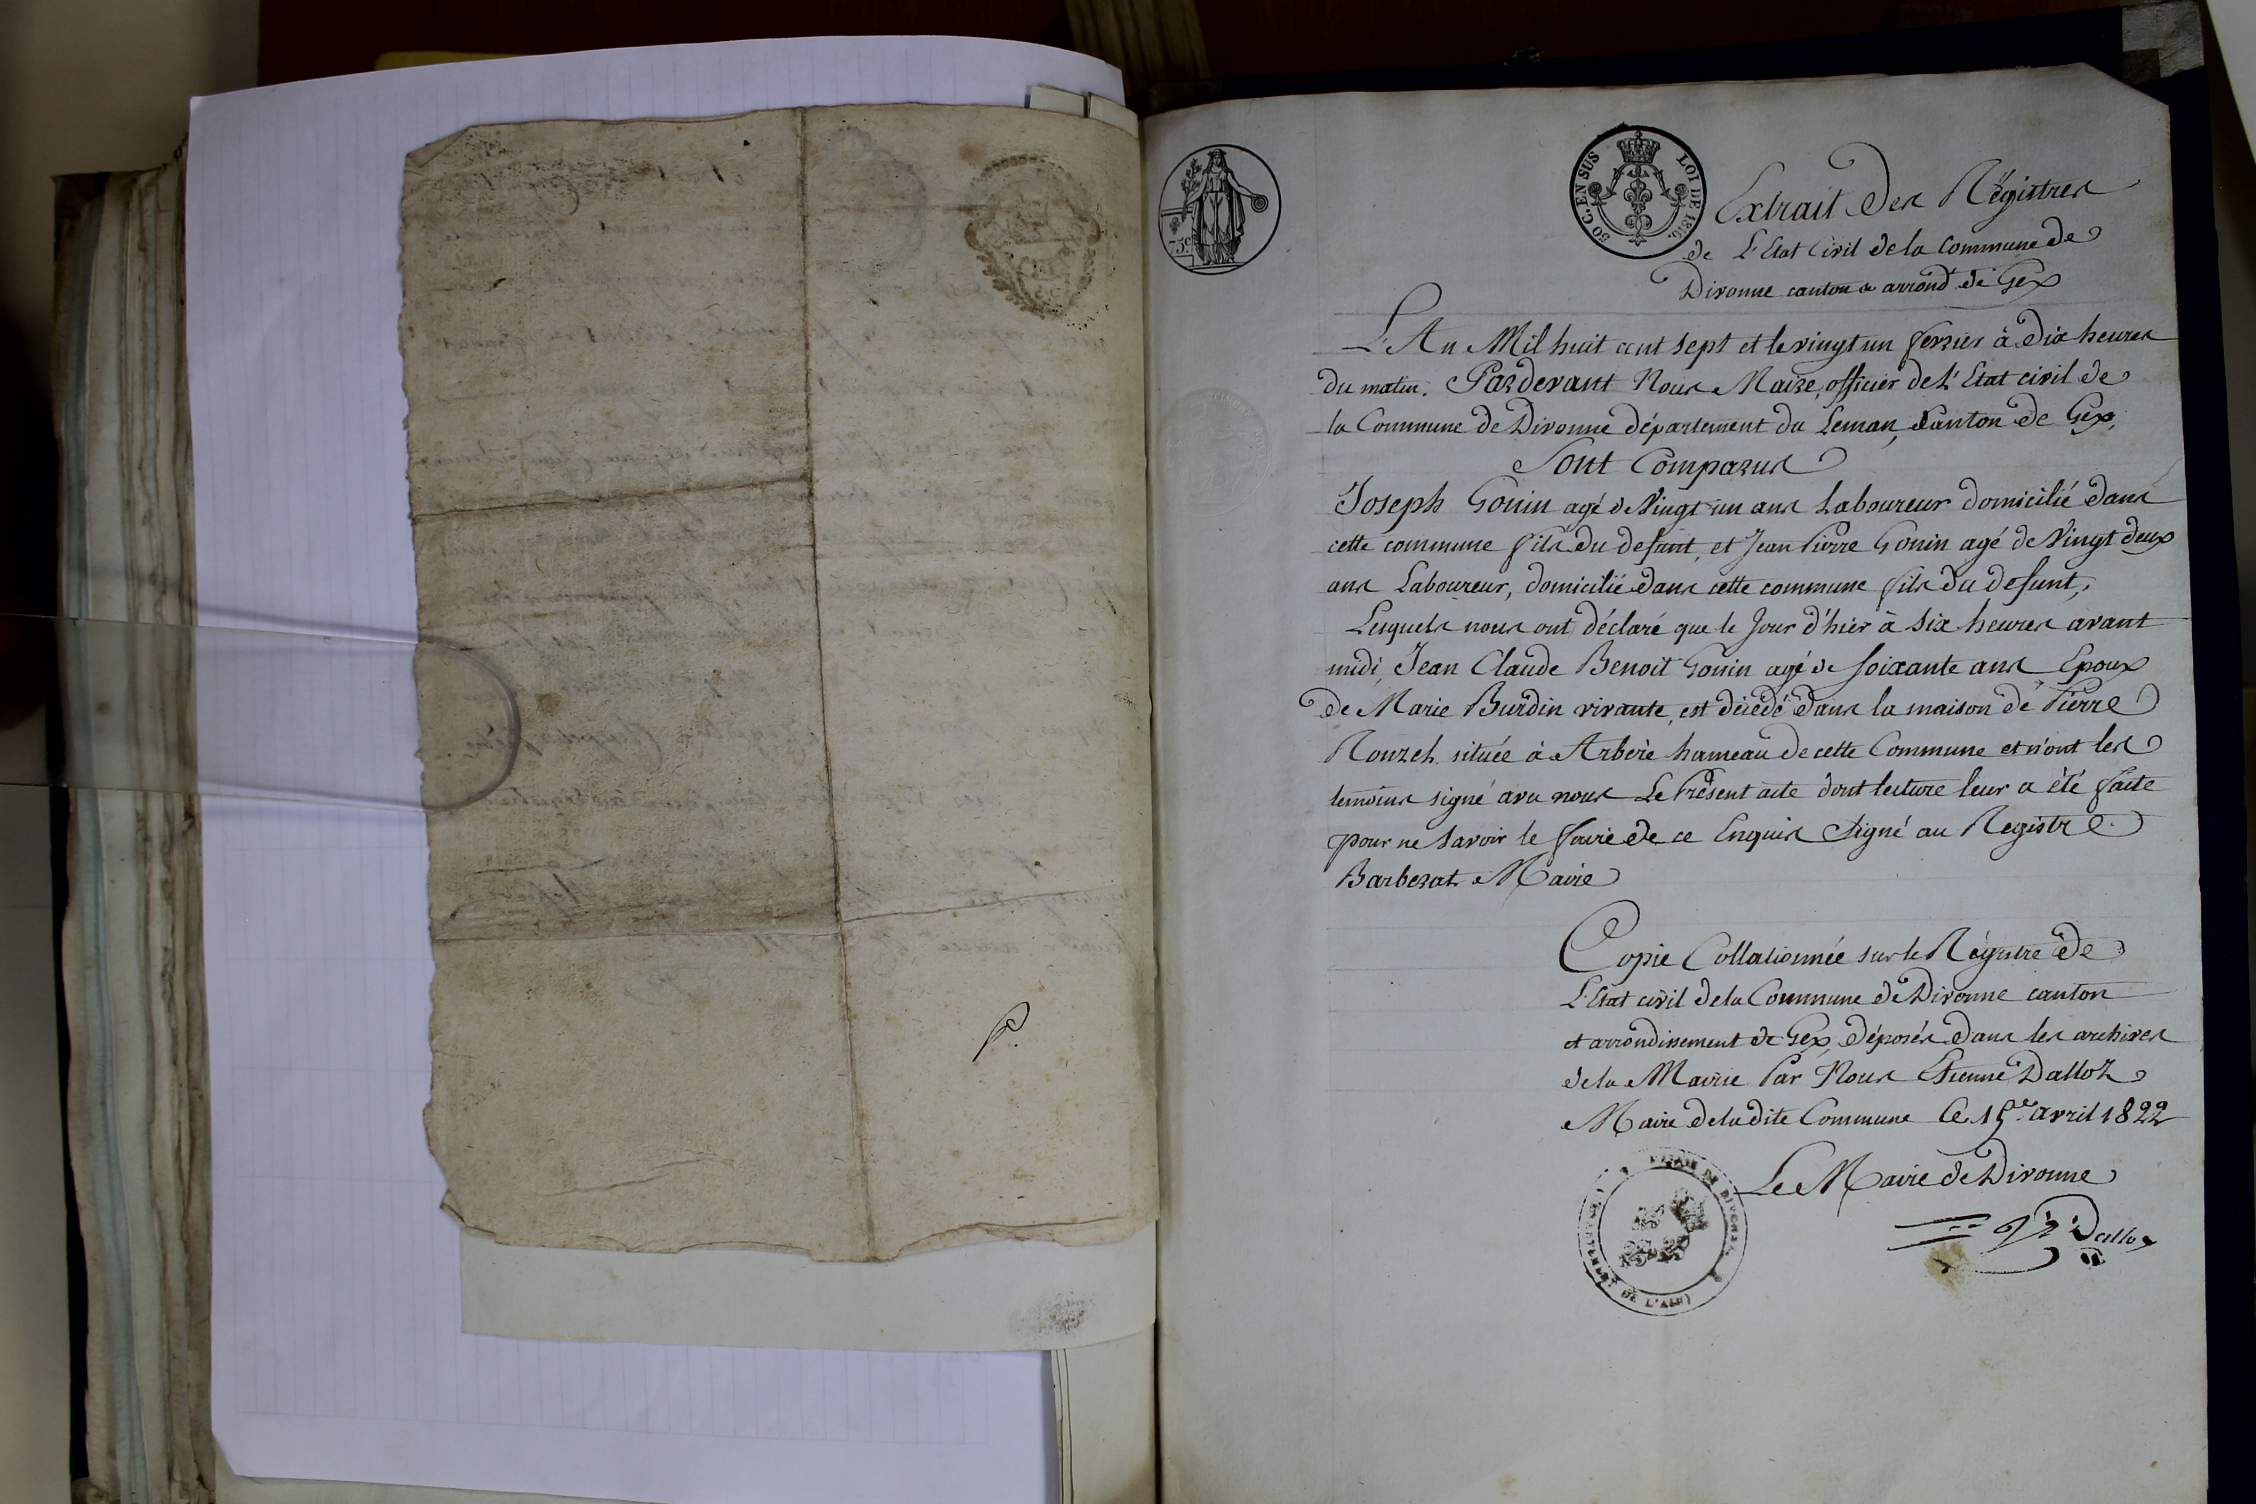 P.
75c
50 C. EN SUS
LOI DE 1816.
Extrait Des Régistres
de L'Etat Civil de la Commune de
Divonne canton & arrond.t de Gex
L'An Mil huit cent sept et le vingt un fevrier à Dix heures
du matin. Pardevant Nous Maire, officier de L'Etat civil de
la Commune de Divonne département du Leman, Canton de Gex,
Sont Comparus
Joseph Gonin agé de Vingt un ans Laboureur domicilié dans
cette commune fils du defunt, et Jean Pierre Gonin agé de Vingt deux
ans Laboureur, domicilié dans cette commune fils du defunt,
Lesquels nous ont déclaré que le Jour d'hier à six heures avant
midi, Jean Claude Benoit Gonin agé de soixante ans Epoux
de Marie Burdin vivante, est décédé dans la maison de Pierre
située à Arbère hameau de cette Commune et n'ont les
temoins signé avec nous Le Présent acte dont lecture leur a été faite
pour ne savoir le faire de ce Enquis Signé au Registre
Barbezat Maire
Copie Collationnée sur le Régistre de
L'Etat civil de la Commune de Divonne canton
et arrondissement de Gex, déposés dans les archives
de la Mairie Par Nous Etienne Dalloz
Maire de la dite Commune Ce 15e avril 1822
Le Maire de Divonne
Dalloz
MAIRIE DE DIVONNE
DE L'AIN)